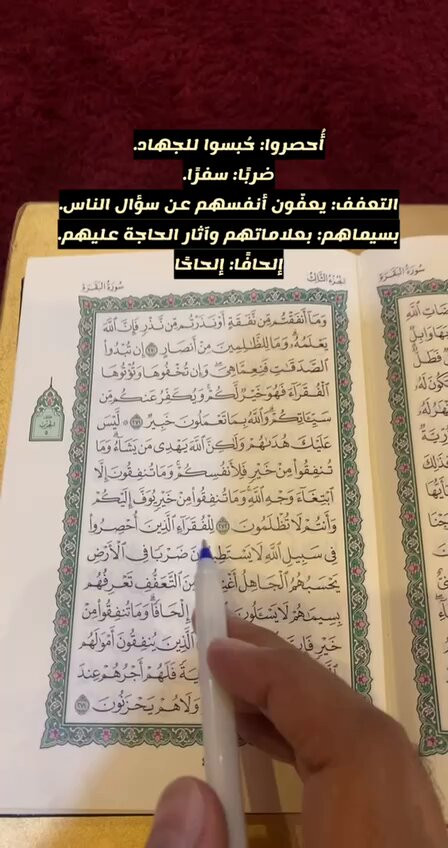 أُحصروا: حُبسوا للجهاد.
ضربًا: سفرًا.
التعفف: يعفّون أنفسهم عن سؤال الناس.
بسيماهم: بعلاماتهم وآثار الحاجة عليهم.
إلحافًا: إلحاحًا
الجزء الثالث
سورة البقرة
سورة البقرة
وَمَآ أَنفَقۡتُم مِّن نَّفَقَةٍ أَوۡ نَذَرۡتُم مِّن نَّذۡرٖ فَإِنَّ ٱللَّهَ
يَعۡلَمُهُۥۗ وَمَا لِلظَّٰلِمِينَ مِنۡ أَنصَارٍ ٢٧٠ إِن تُبۡدُواْ
ٱلصَّدَقَٰتِ فَنِعِمَّا هِيَۖ وَإِن تُخۡفُوهَا وَتُؤۡتُوهَا
ٱلۡفُقَرَآءَ فَهُوَ خَيۡرٞ لَّكُمۡۚ وَيُكَفِّرُ عَنكُم مِّن
سَيِّـَٔاتِكُمۡۗ وَٱللَّهُ بِمَا تَعۡمَلُونَ خَبِيرٞ ٢٧١ ۞ لَّيۡسَ
عَلَيۡكَ هُدَىٰهُمۡ وَلَٰكِنَّ ٱللَّهَ يَهۡدِي مَن يَشَآءُۗ وَمَا
تُنفِقُواْ مِنۡ خَيۡرٖ فَلِأَنفُسِكُمۡۚ وَمَا تُنفِقُونَ إِلَّا
ٱبۡتِغَآءَ وَجۡهِ ٱللَّهِۚ وَمَا تُنفِقُواْ مِنۡ خَيۡرٖ يُوَفَّ إِلَيۡكُمۡ
وَأَنتُمۡ لَا تُظۡلَمُونَ ٢٧٢ لِلۡفُقَرَآءِ ٱلَّذِينَ أُحۡصِرُواْ
فِي سَبِيلِ ٱللَّهِ لَا يَسۡتَطِيعُونَ ضَرۡبٗا فِي ٱلۡأَرۡضِ
يَحۡسَبُهُمُ ٱلۡجَاهِلُ مِنَ ٱلتَّعَفُّفِ تَعۡرِفُهُم
بِسِيمَٰهُمۡ لَا يَسۡـَٔلُونَ إِلۡحَافٗاۗ وَمَا تُنفِقُواْ مِنۡ
خَيۡرٖ ٱلَّذِينَ يُنفِقُونَ أَمۡوَٰلَهُم
فَلَهُمۡ أَجۡرُهُمۡ عِندَ
وَلَا هُمۡ يَحۡزَنُونَ ٢٧٤